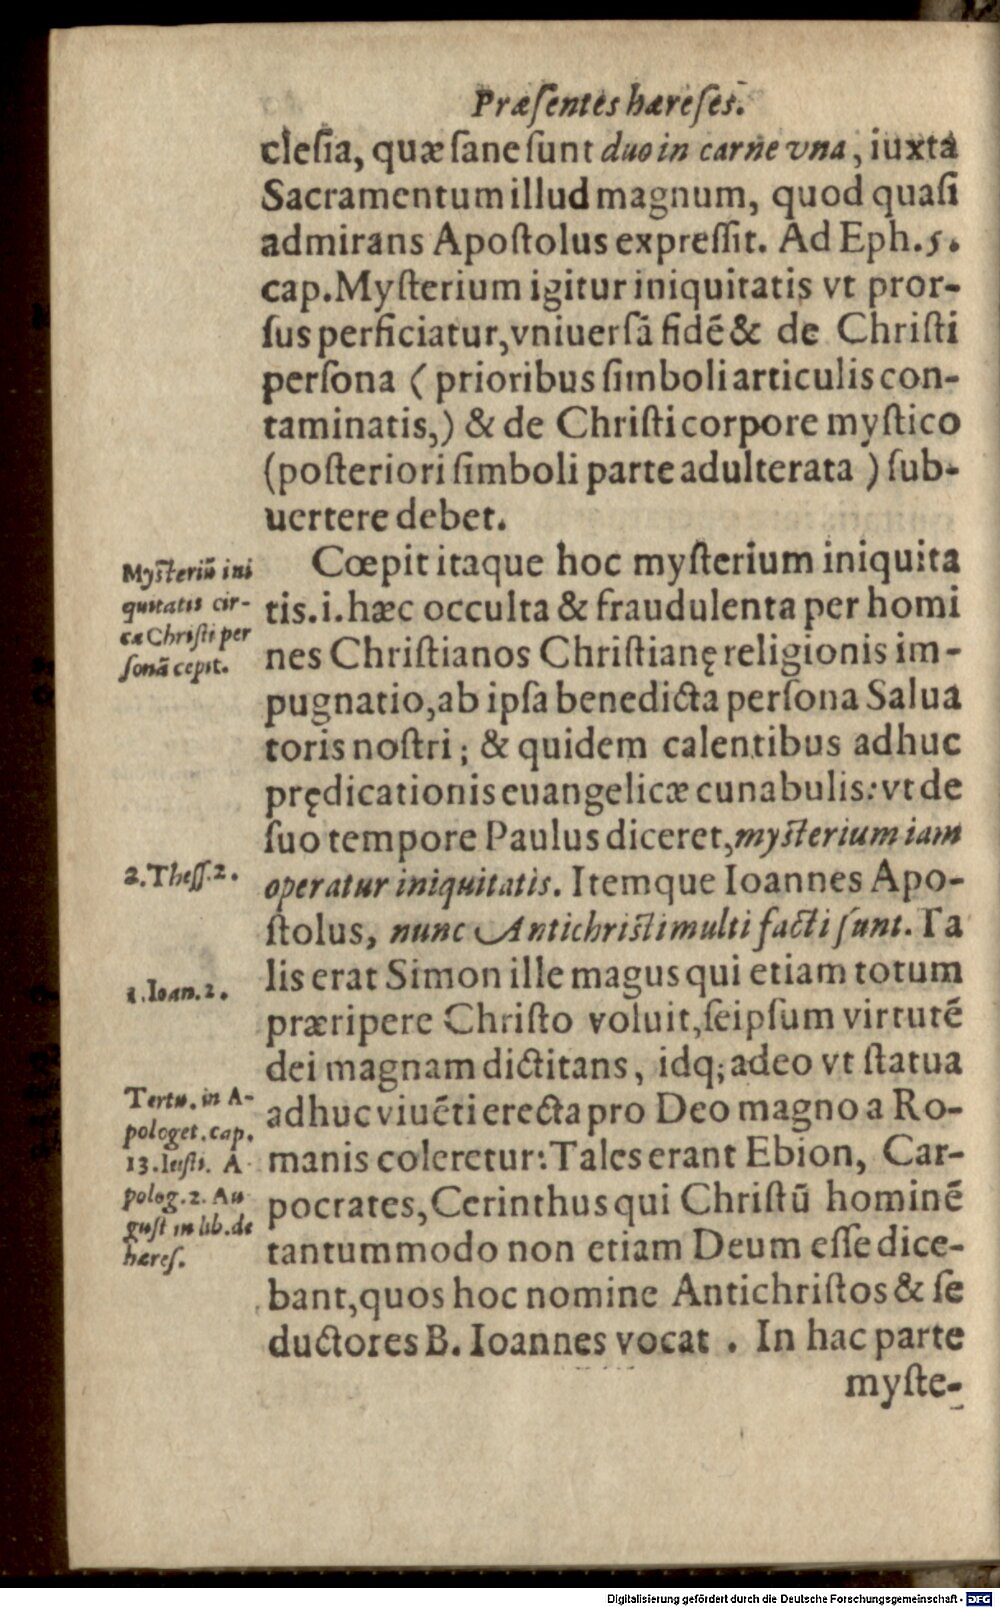 Præſentes hæreſes.
cleſia, quæ ſane ſunt duo in carne vna, iuxta
Sacramentum illud magnum, quod quaſi
admirans Apoſtolus expreſſit. Ad Eph. 5.
cap. Myſterium igitur iniquitatis vt pror-
ſus perficiatur, vniuerſã fidẽ & de Chriſti
perſona ( prioribus ſimboli articulis con-
taminatis,) & de Chriſti corpore myſtico
(poſteriori ſimboli parte adulterata ) ſub-
uertere debet.
Myſteriũ ini
quitatis cir-
ca Chriſti per
ſonã cepit.
Cœpit itaque hoc myſterium iniquita
tis. i. hæc occulta & fraudulenta per homi
nes Chriſtianos Chriſtianę religionis im-
pugnatio, ab ipſa benedicta perſona Salua
toris noſtri; & quidem calentibus adhuc
prędicationis euangelicæ cunabulis: vt de
ſuo tempore Paulus diceret, myſterium iam
2. Theſſ. 2.
operatur iniquitatis. Itemque Ioannes Apo-
ſtolus, nunc Antichriſti multi facti ſunt. Ta
1. Ioan. 2.
lis erat Simon ille magus qui etiam totum
præripere Chriſto voluit, ſeipſum virtutẽ
dei magnam dictitans, idq; adeo vt ſtatua
Tertu. in A-
pologet. cap.
13. Iuſti. A
polog. 2. Au
guſt in lib. de
hæreſ.
adhuc viuẽti erecta pro Deo magno a Ro-
manis coleretur: Tales erant Ebion, Car-
pocrates, Cerinthus qui Chriſtũ hominẽ
tantummodo non etiam Deum eſſe dice-
bant, quos hoc nomine Antichriſtos & ſe
ductores B. Ioannes vocat . In hac parte
myſte-
Digitalisierung gefördert durch die Deutsche Forschungsgemeinschaft - DFG